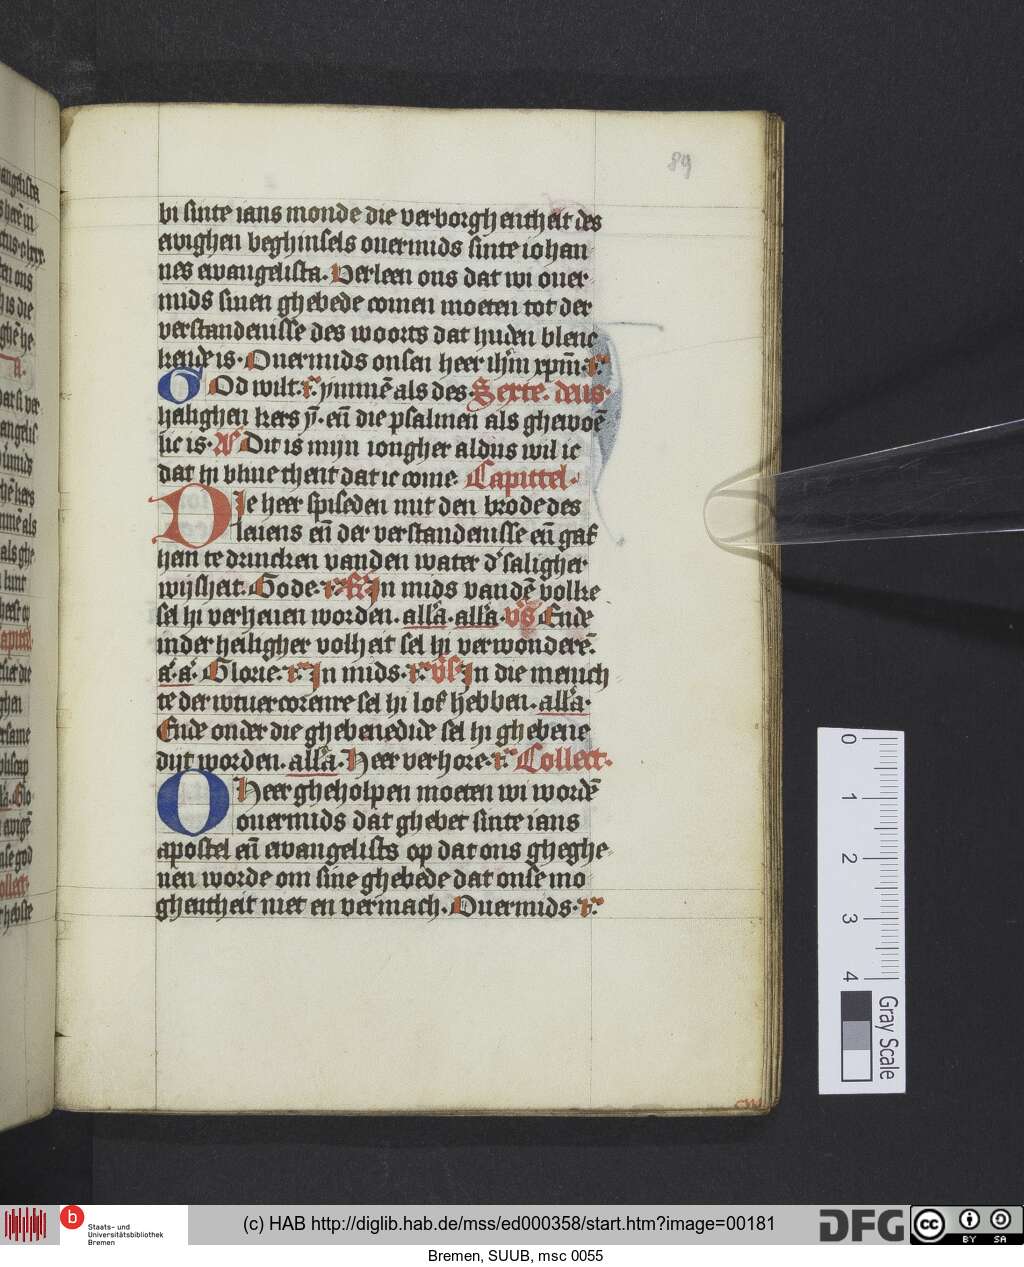 89
bi sinte ians monde die verborghentheit des
ewighen beghinsels ouermids sinte iohan
nes ewangelista. Verleen ons dat wi ouer
mids sinen ghebede comen moeten tot der
verstandenisse des woorts dat huden blenc
kende is. Ouermids onsen heer ihm xpm. rc
GOd wilt. rc ymmē als des. Sexte. deus.
halighen kers ȳ. eñ die psalmen als ghewoē
lic is. Aᵉ Dit is mijn iongher aldus wil ic
dat hi bliue theit dat ic come. Capittel.
DIe heer spiseden mit den brode des
leuens eñ der verstandenisse eñ gaf
hen te drincken vanden water d'saligher
wijsheit. Gode. rc In mids vandē volke
sel hi verheuen worden. alla. alla. vs Ende
inder heiligher volheit sel hi verwonderē.
a. a. Glorie. rc In mids. rc vs In die menich
te der wtuercorenre sel hi lof hebben. alla.
Ende onder die ghebenedide sel hi ghebene
dijt worden. alla. Heer verhore. rc Collect.
O Heer gheholpen moeten wi wordē
ouermids dat ghebet sinte ians
apostel eñ ewangelists op dat ons gheghe
uen worde om sine ghebede dat onse mo
ghentheit niet en vermach. Ouermids. rc
0
1
2
3
4
Gray Scale
b
Staats- und
Universitätsbibliothek
Bremen
(c) HAB http://diglib.hab.de/mss/ed000358/start.htm?image=00181
DFG
cc
BY SA
Bremen, SUUB, msc 0055